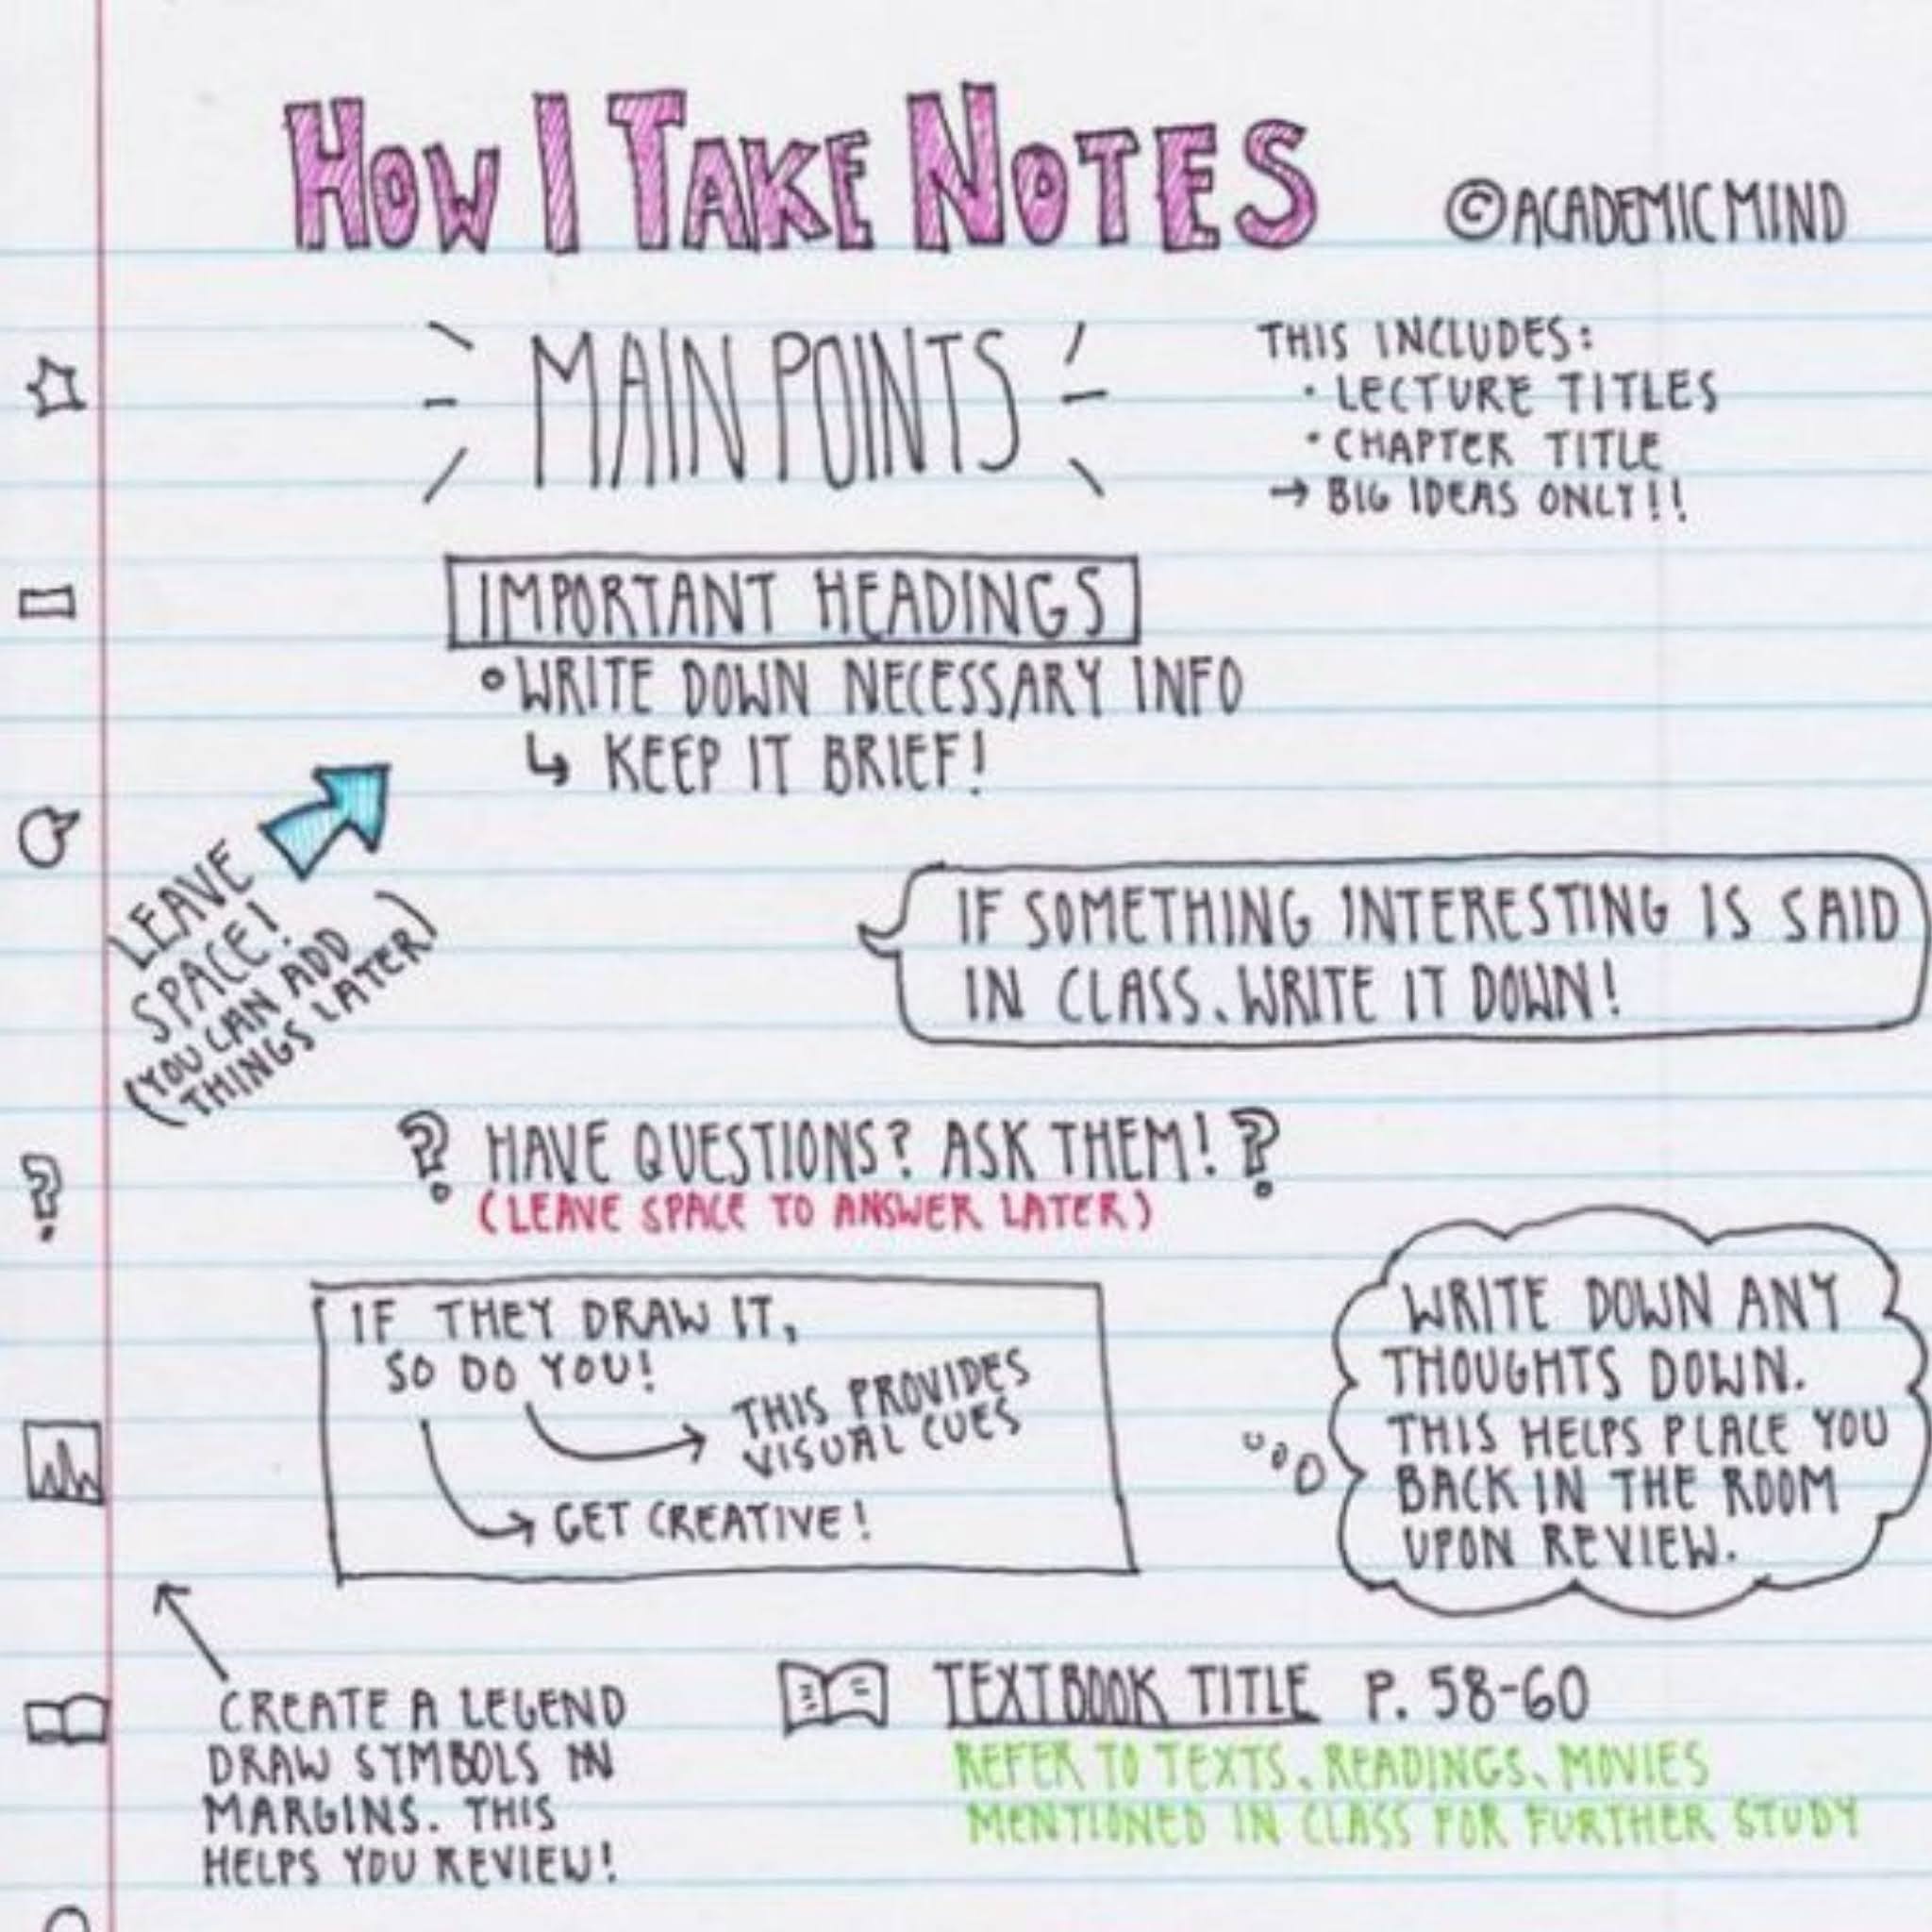 HOW I TAKE NOTES
©ACADEMICMIND
MAIN POINTS
THIS INCLUDES:
· LECTURE TITLES
· CHAPTER TITLE
→ BIG IDEAS ONLY!!
IMPORTANT HEADINGS
∘ WRITE DOWN NECESSARY INFO
↳ KEEP IT BRIEF!
LEAVE
SPACE!
(YOU CAN ADD
THINGS LATER)
IF SOMETHING INTERESTING IS SAID
IN CLASS, WRITE IT DOWN!
? HAVE QUESTIONS? ASK THEM! ?
(LEAVE SPACE TO ANSWER LATER)
?
IF THEY DRAW IT,
SO DO YOU!
→ THIS PROVIDES
VISUAL CUES
→ GET CREATIVE!
WRITE DOWN ANY
THOUGHTS DOWN.
THIS HELPS PLACE YOU
BACK IN THE ROOM
UPON REVIEW.
CREATE A LEGEND
DRAW SYMBOLS IN
MARGINS. THIS
HELPS YOU REVIEW!
TEXTBOOK TITLE P. 58-60
REFER TO TEXTS, READINGS, MOVIES
MENTIONED IN CLASS FOR FURTHER STUDY